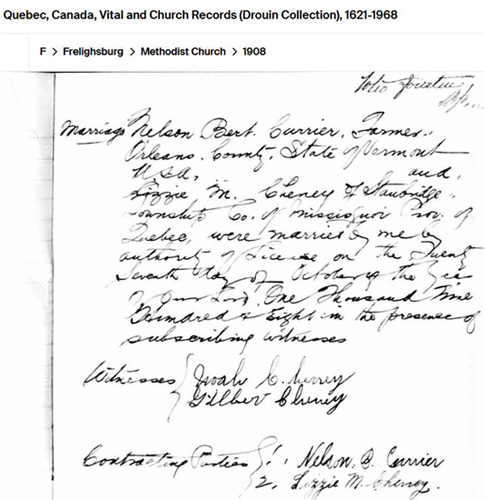 Quebec, Canada, Vital and Church Records (Drouin Collection), 1621-1968
F > Frelighsburg > Methodist Church > 1908
Folio fourteen
Marriage Nelson Bert. Currier, Farmer,
Orleans. County, State of Vermont
U.S.A, and,
Lizzie M. Cheney of Stanbridge
Township Co. of Missisquoi Prov. of
Quebec, were married by me by
authority of License on the Twenty
Seventh day of October in the Year
of Our Lord, One Thousand Nine
Hundred & Eight in the presence of
subscribing witnesses
Witnesses
Gilbert Cheney
Contracting Parties 1, Nelson. B. Currier
2, Lizzie M. Cheney.